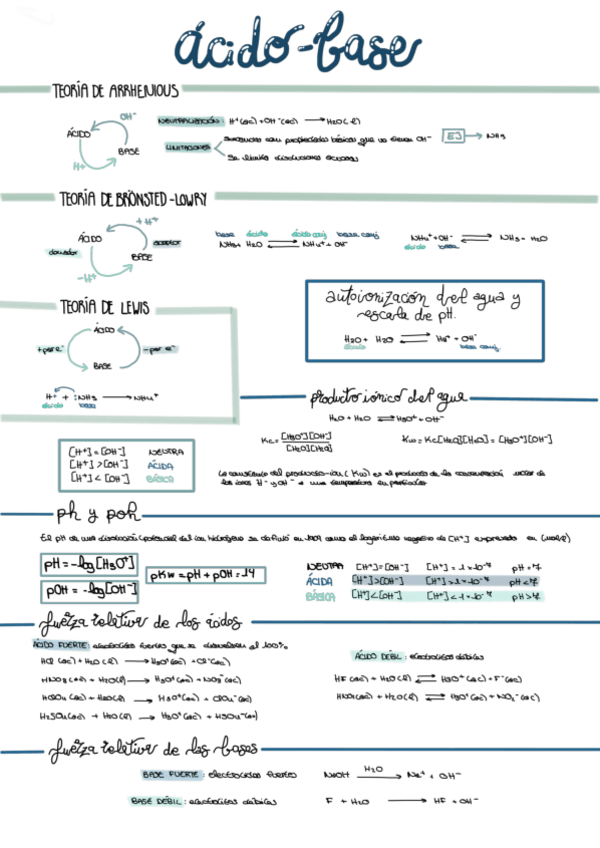 ácido-base
TEORÍA DE ARRHENIOUS
OH⁻
ÁCIDO
BASE
H⁺
NEUTRALIZACIÓN: H⁺(ac) + OH⁻(ac) → H₂O(l)
LIMITACIONES
Sustancias con propiedades básicas que no tienen OH⁻
EJ → NH₃
Se limita disoluciones acuosas
TEORÍA DE BRÖNSTED-LOWRY
+H⁺
ÁCIDO
donador
aceptor
BASE
-H⁺
base ácido ácido conj base conj
NH₃ + H₂O ⇌ NH₄⁺ + OH⁻
NH₄⁺ + OH⁻ ⇌ NH₃ + H₂O
ácido base
TEORÍA DE LEWIS
ÁCIDO
+par e⁻
-par e⁻
BASE
H⁺ + :NH₃ → NH₄⁺
ácido base
autoionización del agua y
escala de pH.
H₂O + H₂O ⇌ + OH⁻
ácido base conj.
producto iónico del agua
H₂O + H₂O ⇌ H₃O⁺ + OH⁻
Kc = [H₃O⁺][OH⁻] / [H₂O][H₂O]
Kw = Kc[H₂O][H₂O] = [H₃O⁺][OH⁻]
[H⁺] = [OH⁻] NEUTRA
[H⁺] > [OH⁻] ÁCIDA
[H⁺] < [OH⁻] BÁSICA
La constante del producto-ion (Kw) es el producto de la concentración molar de
los iones H⁺ y OH⁻ a una temperatura en particular
ph y poh
El pH de una disolución (potencial del ion hidrógeno se definió en 1909 como el logaritmo negativo de [H⁺] expresada en (mol/l)
pH = -log[H₃O⁺]
pOH = -log[OH⁻]
pKw = pH + pOH = 14
NEUTRA [H⁺] = [OH⁻] [H⁺] = 1×10⁻⁷ pH = 7
ÁCIDA [H⁺] > [OH⁻] [H⁺] > 1×10⁻⁷ pH < 7
BÁSICA [H⁺] < [OH⁻] [H⁺] < 1×10⁻⁷ pH > 7
fuerza relativa de los ácidos
ÁCIDO FUERTE: electrolitos fuertes que se al 100%
HCl(ac) + H₂O(l) → H₃O⁺(ac) + Cl⁻(ac)
HNO₃(ac) + H₂O(l) → H₃O⁺(ac) + NO₃⁻(ac)
HClO₄(ac) + H₂O(l) → H₃O⁺(ac) + ClO₄⁻(ac)
H₂SO₄(ac) + H₂O(l) → H₃O⁺(ac) + HSO₄⁻(ac)
ÁCIDO DÉBIL: electrolitos débiles
HF(ac) + H₂O(l) ⇌ H₃O⁺(ac) + F⁻(ac)
HNO₂(ac) + H₂O(l) ⇌ H₃O⁺(ac) + NO₂⁻(ac)
fuerza relativa de las bases
BASE FUERTE: electrolitos fuertes
NaOH → Na⁺ + OH⁻
H₂O
BASE DÉBIL: electrolitos débiles
F + H₂O → HF + OH⁻